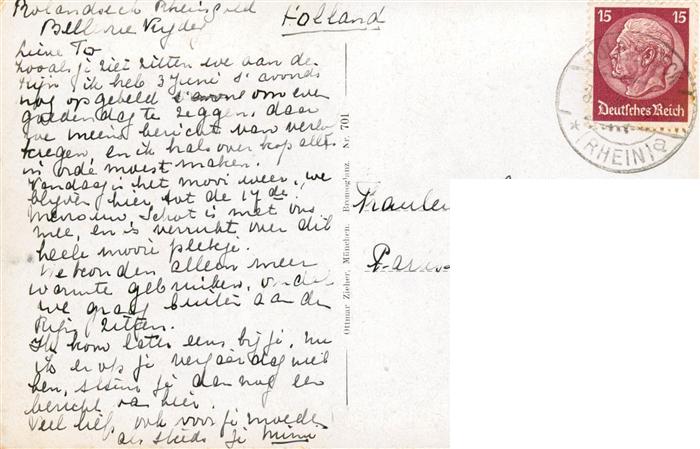 Rolandseck Rheingold
Bellevue
Holland
Lieve To
Zooals je ziet zitten we aan de
Rijn ik heb 3 Juni 's avonds
nog opgebeld om even
goedendag te zeggen, daar
we ineens bericht van verlof
kregen, en ik hals over kop alles
in orde moest maken.
Vandaag is het mooi weer, we
blijven hier tot de 17de.
Mevrouw Schot is met ons
mee, en is verrukt over dit
heele mooie plekje.
We konden alleen meer
warmte gebruiken, omdat
we graag buiten aan de
Rijn zitten.
Ik kom later eens bij je, nu
ik er op je verjaardag niet
ben, stuur je dan nog een
bericht van hier.
Veel liefs ook voor je moeder
als steeds je Mimi
Ottmar Zieher, München. Bromoglanz. Nr. 701
15 15
Deutsches Reich
(RHEIN) a